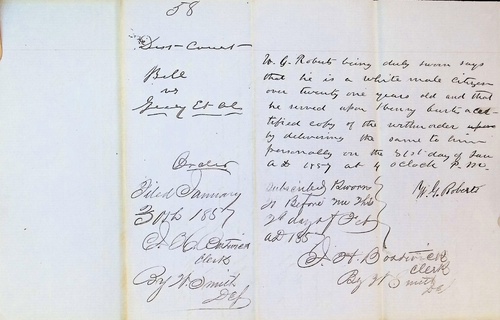 58
Dist Court
Bill
vs
Et Al
Order
Filed January
30th 1857
J. H. Bostwick
clerk
By W. Smith
Dep
W. G. Roberts being duly sworn says
that he is a white male citizen
over twenty one years old and that
he served upon Henry a cer-
tified copy of the within order
by delivering the same to him
personally on the 31st day of Jan
AD 1857 at 4 oclock P.M.
W. G. Roberts
Subscribed & sworn
to Before me this
2d day of
AD 185
J. H. Bostwick
Clerk
By W Smith
Dep